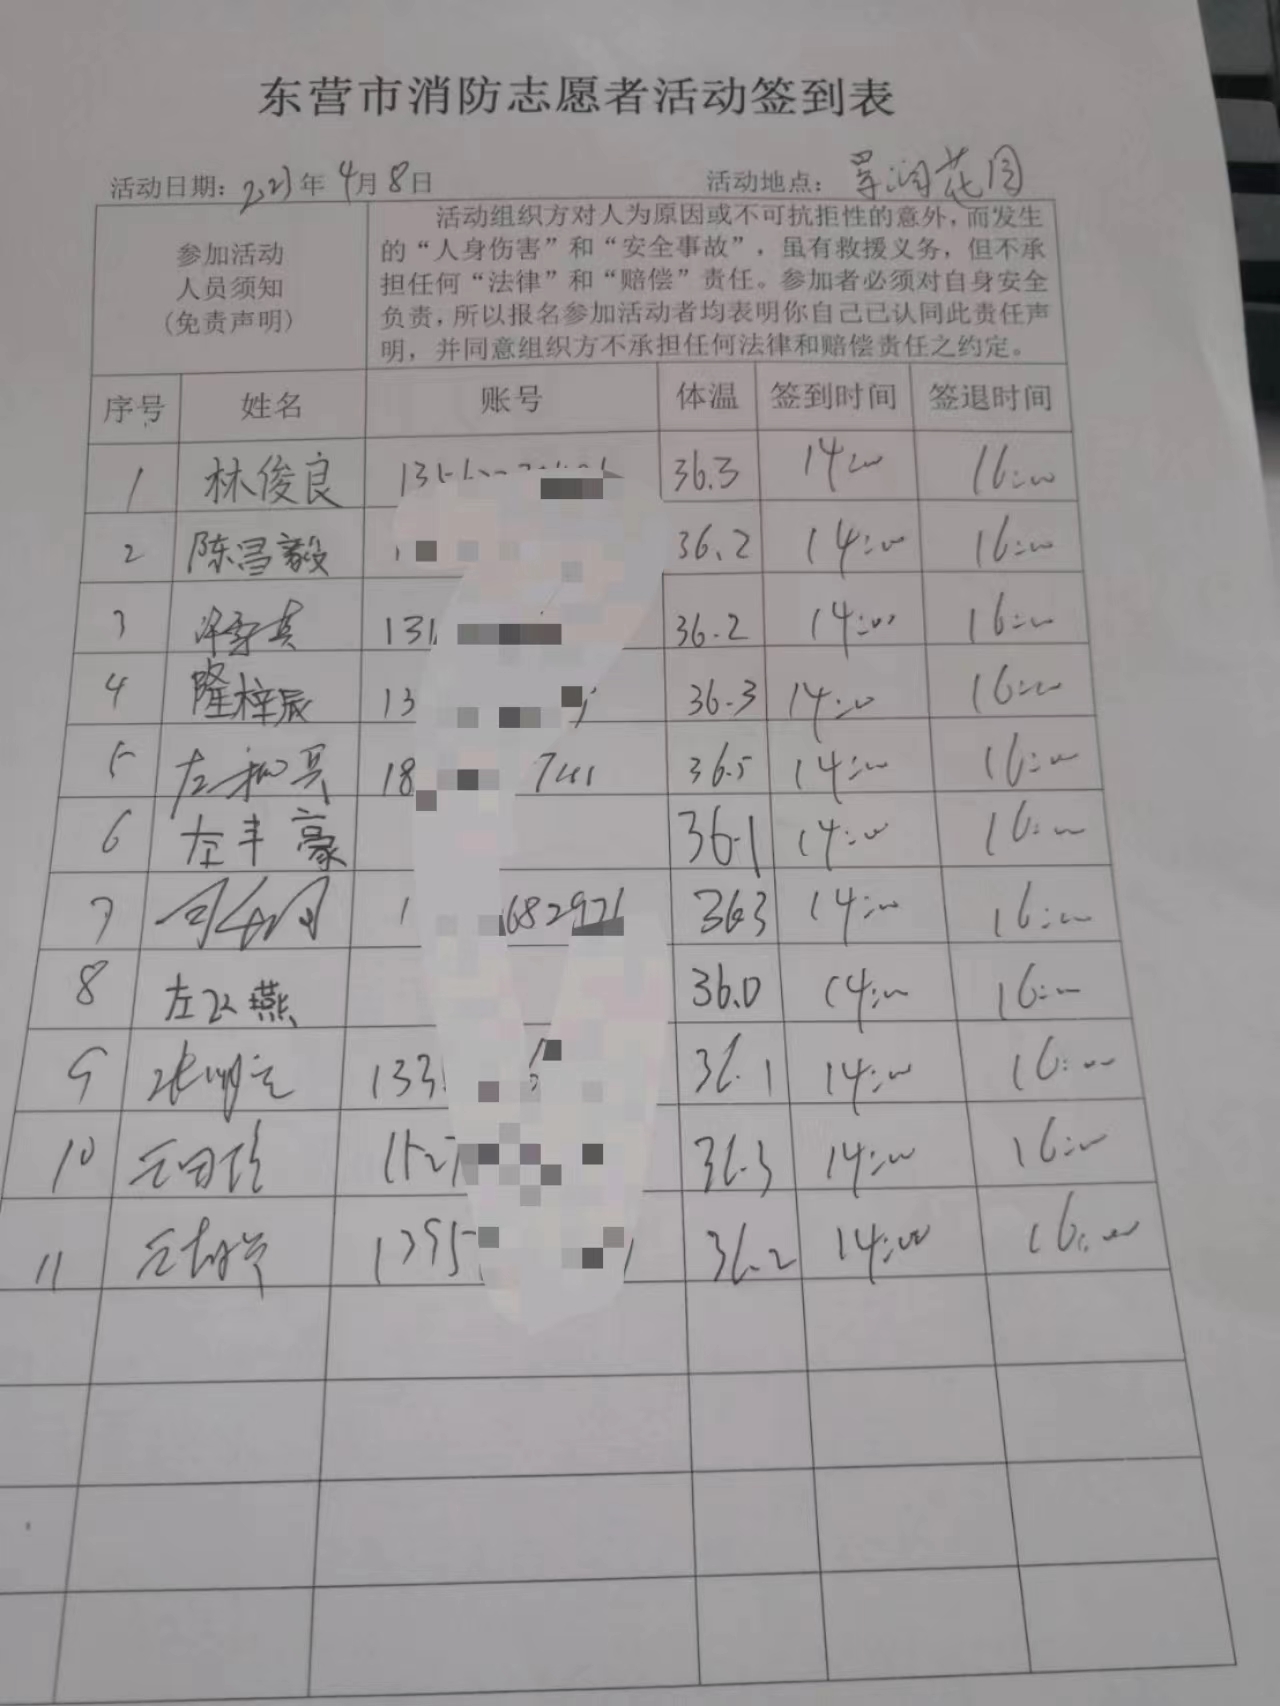 东营市消防志愿者活动签到表
活动日期：2023年4月8日 活动地点：花园
参加活动
人员须知
(免责声明)
活动组织方对人为原因或不可抗拒性的意外，而发生
的“人身伤害”和“安全事故”，虽有救援义务，但不承
担任何“法律”和“赔偿”责任。参加者必须对自身安全
负责，所以报名参加活动者均表明你自己已认同此责任声
明，并同意组织方不承担任何法律和赔偿责任之约定。
序号 姓名 账号 体温 签到时间 签退时间
1 林俊良 36.3 14:00 16:00
2 陈昌毅 36.2 14:00 16:00
3 131 36.2 14:00 16:00
4 隆梓辰 13 36.3 14:00 16:00
5 左 18 741 36.5 14:00 16:00
6 左丰豪 36.1 14:00 16:00
7 1 682921 36.3 14:00 16:00
8 左燕 36.0 14:00 16:00
9 133 36.1 14:00 16:00
10 1527 36.3 14:00 16:00
11 1395 36.2 14:00 16:00